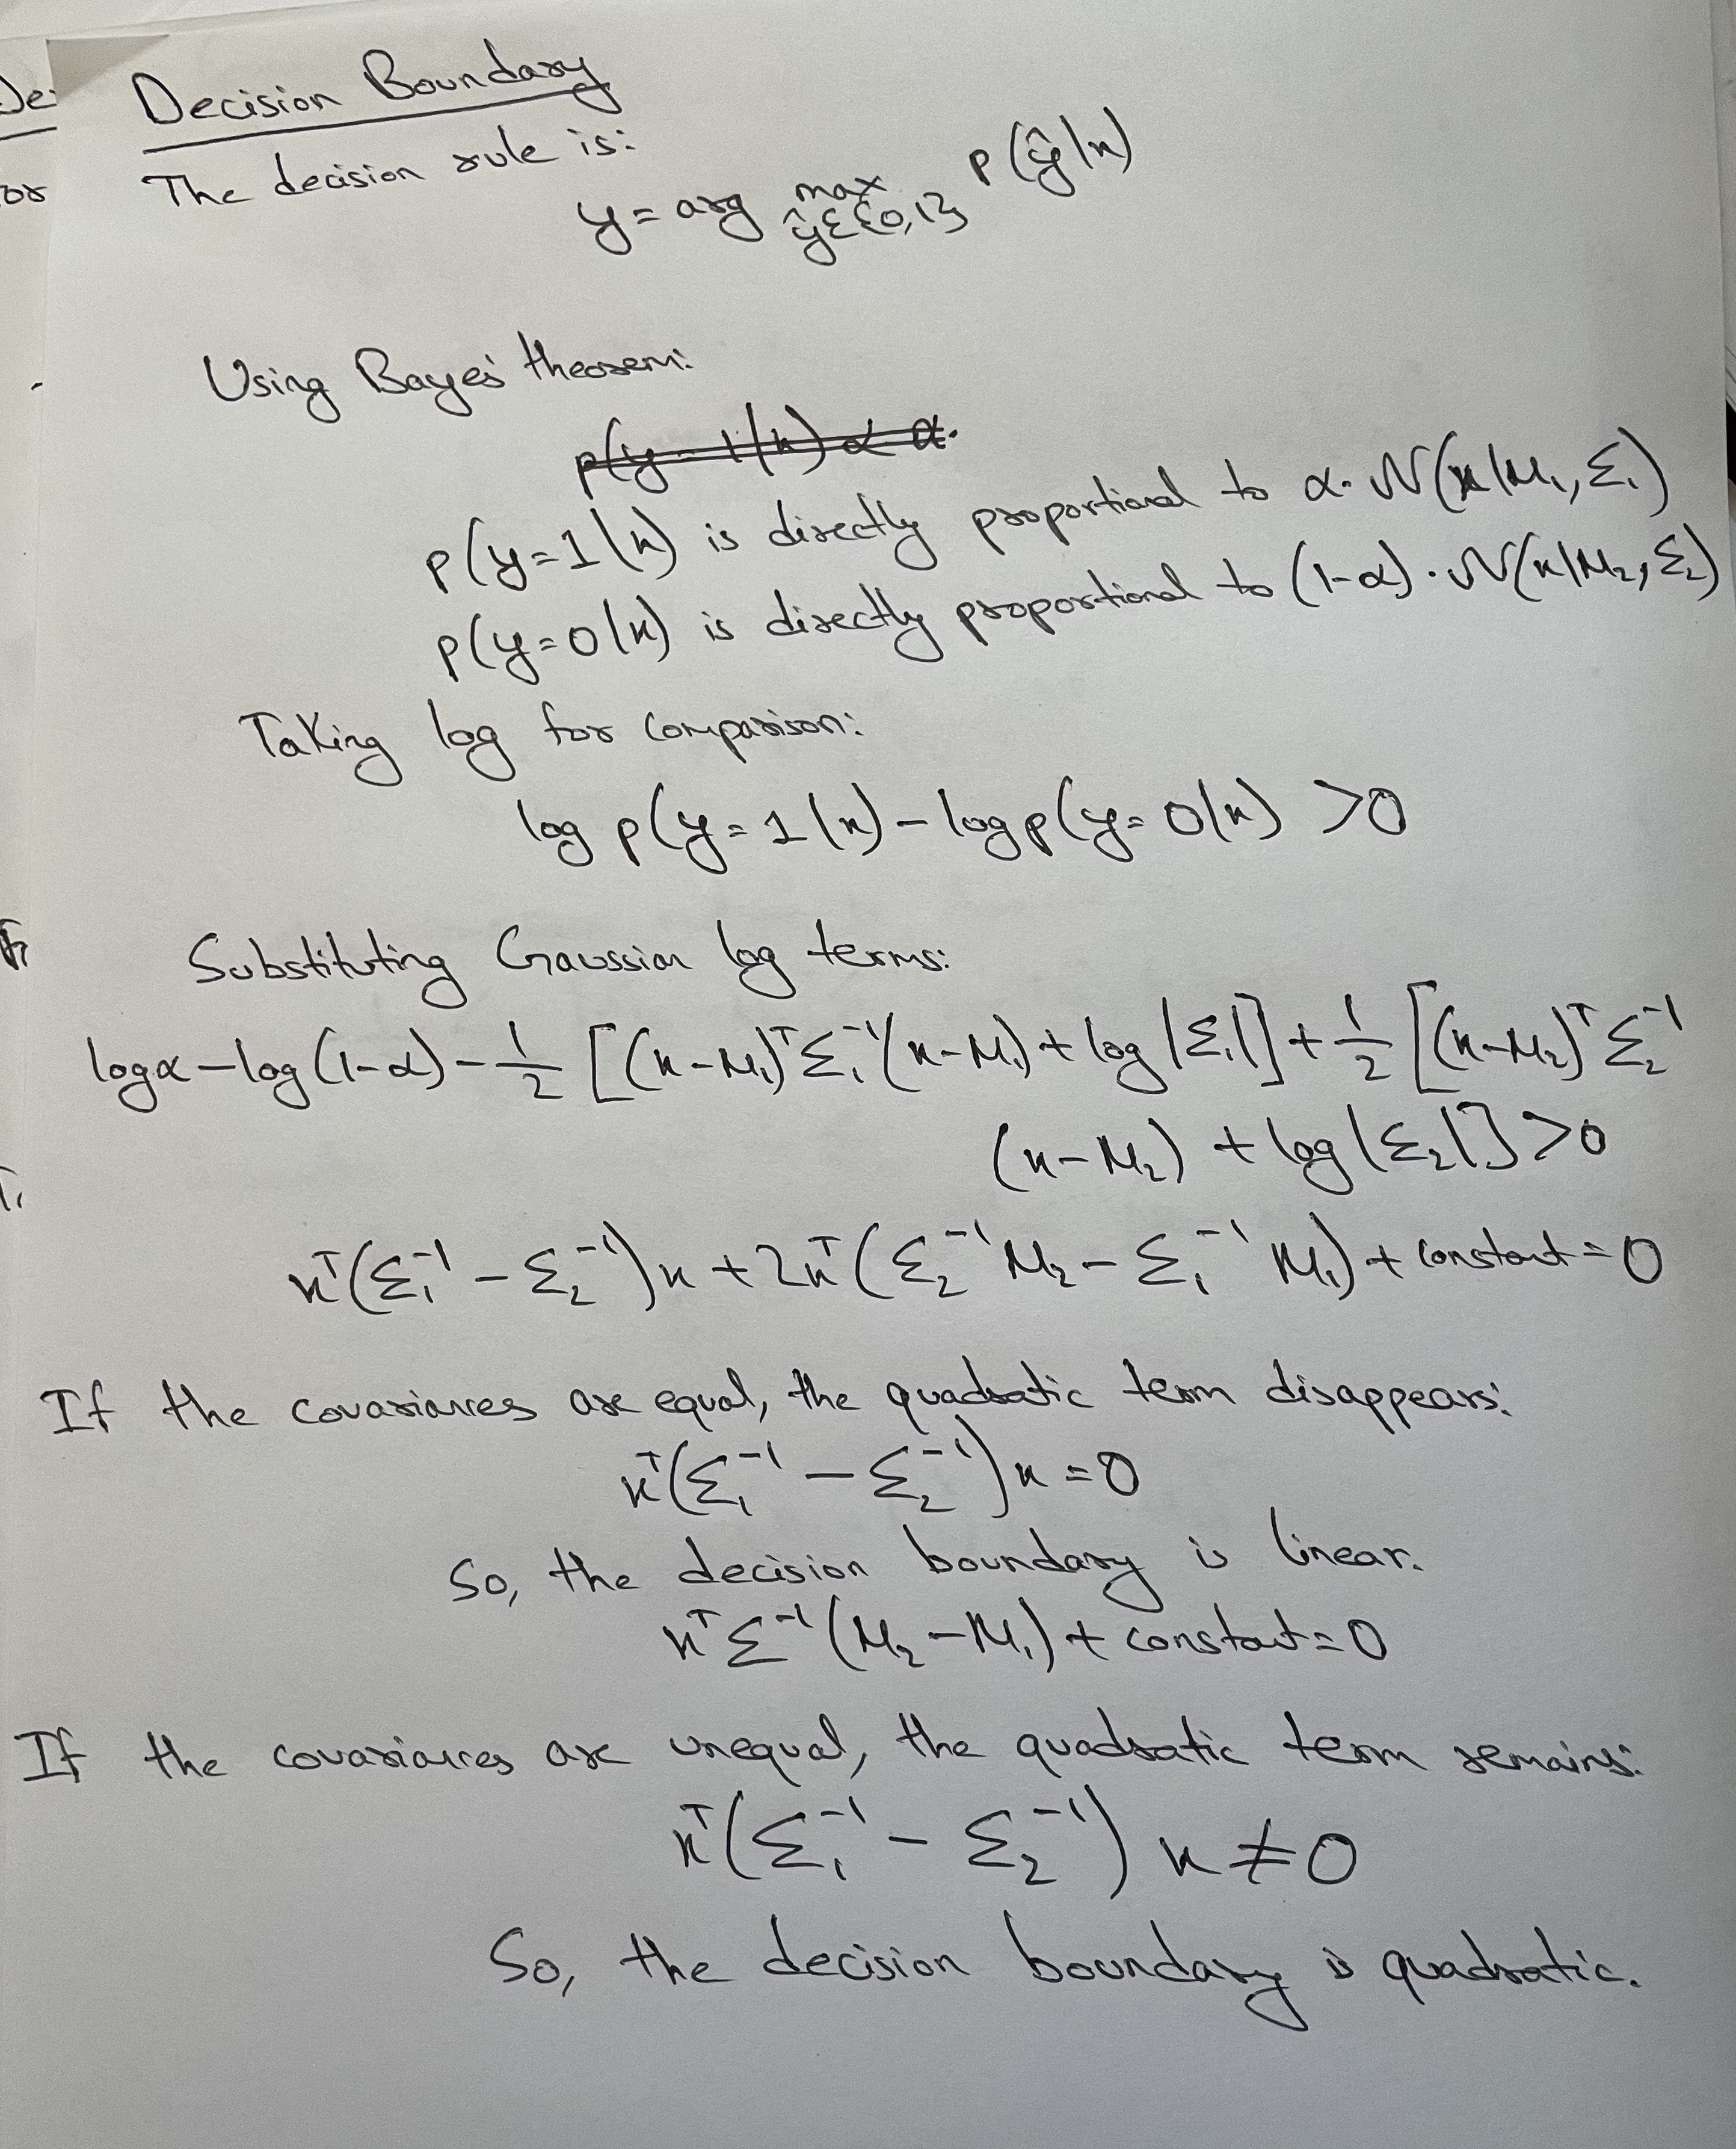 De
Decision Boundary
or
The decision rule is:
y = arg max ŷ∈{0,1} p(ŷ|x)
Using Bayes' theorem:
p(y=1|x) ∝ α.
p(y=1|x) is directly proportional to α. N(x|μ₁, Σ₁)
p(y=0|x) is directly proportional to (1-α) . N(x|μ₂, Σ₂)
Taking log for comparison:
log p(y=1|x) - log p(y=0|x) >0
Substituting Gaussian log terms:
logα - log(1-α) - 1/2 [(x-μ₁)ᵀ Σ₁⁻¹ (x-μ₁) + log|Σ₁|] + 1/2 [(x-μ₂)ᵀ Σ₂⁻¹
(x-μ₂) + log|Σ₂|] >0
xᵀ(Σ₁⁻¹ - Σ₂⁻¹)x + 2xᵀ(Σ₂⁻¹ μ₂ - Σ₁⁻¹ μ₁) + constant = 0
If the covariances are equal, the quadratic term disappears:
xᵀ(Σ₁⁻¹ - Σ₂⁻¹)x = 0
So, the decision boundary is linear:
xᵀΣ⁻¹(μ₂ - μ₁) + constant = 0
If the covariances are unequal, the quadratic term remains:
xᵀ(Σ₁⁻¹ - Σ₂⁻¹) x ≠ 0
So, the decision boundary is quadratic.